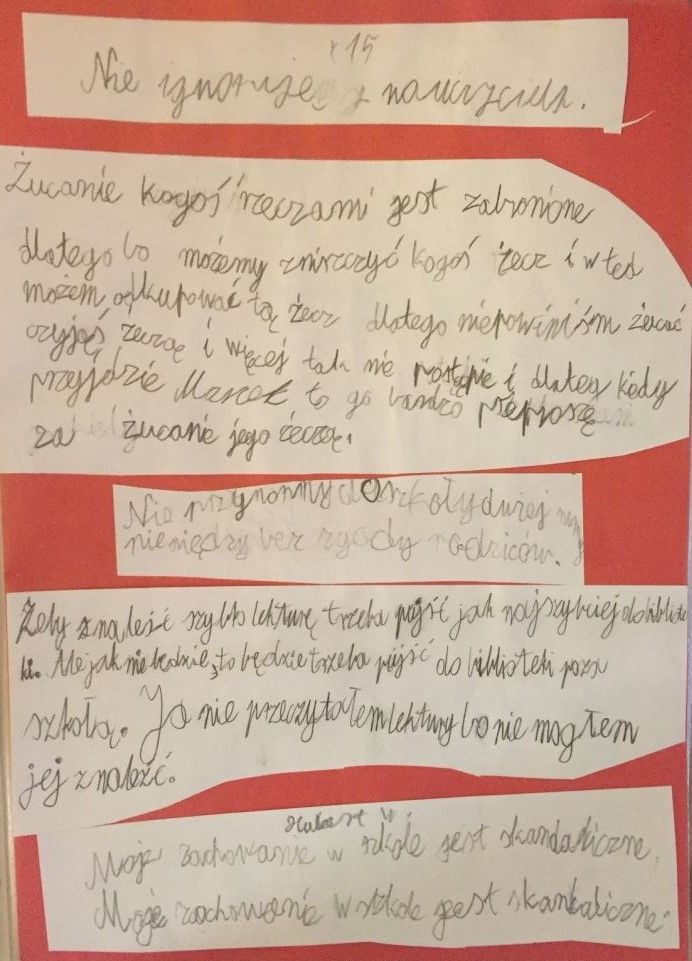 x 15
Nie ignoruję nauczyciela.
Żucanie kogoś rzeczami jest zabronione
dlatego bo możemy zniszczyć kogoś żecz i wted
możem odkupować tą żecz dlatego niepowiniśm żucać
czyjąś żeczą i więcej tak nie postąpie i dlateg kédy
przyjdzie Marcek to go bardzo przeproszę
za żucanie jego żeczą.
Nie przynonny do szkoły dużej
pieniędzy bez zgody rodziców.
Żeby znaleść szybko lekturę trzeba pujść jak najszybciej do bibliote
ki. Me jak nie będzie, to będzie trzeba pujść do biblisteki poza
szkołą. Ja nie przeczytałem lektury bo nie mogłem
jej znaleźć.
Moje zachowanie w szkole jest skandaliczne.
Moje zachowanie w szkole jest skankaliczne